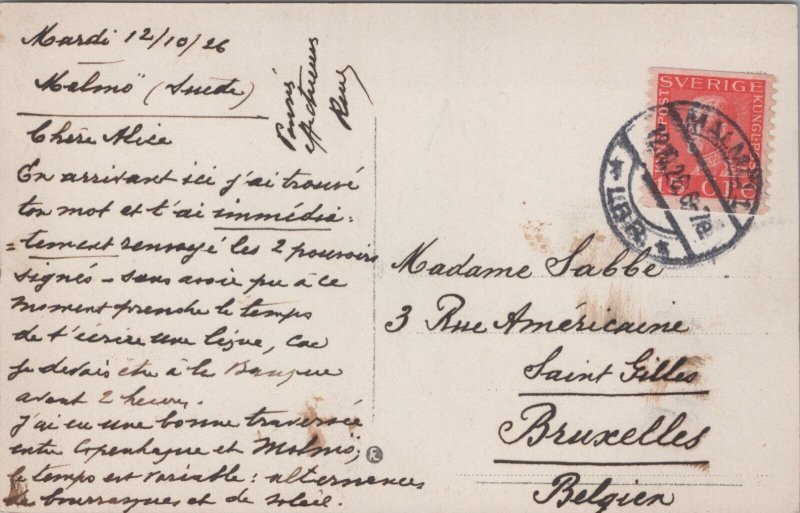 Mardi 12/10/26
Malmö (Suède)
Chère Alice
En arrivant ici j'ai trouvé
ton mot et t'ai immédia-
=tement renvoyé les 2 pouvoirs
signés - sans avoir pu à ce
moment prendre le temps
de t'écrire une ligne, car
je devais être à la Banque
avant 2 heures.
J'ai eu une bonne traversée
entre Copenhague et Malmö;
le temps est variable: alternances
de bourrasques et de soleil.
SVERIGE
POST
KUNGL. POST
15
MALMÖ 1
12.10.26
LBR.
Madame Sabbe
3 Rue Américaine
Saint Gilles
Bruxelles
Belgien